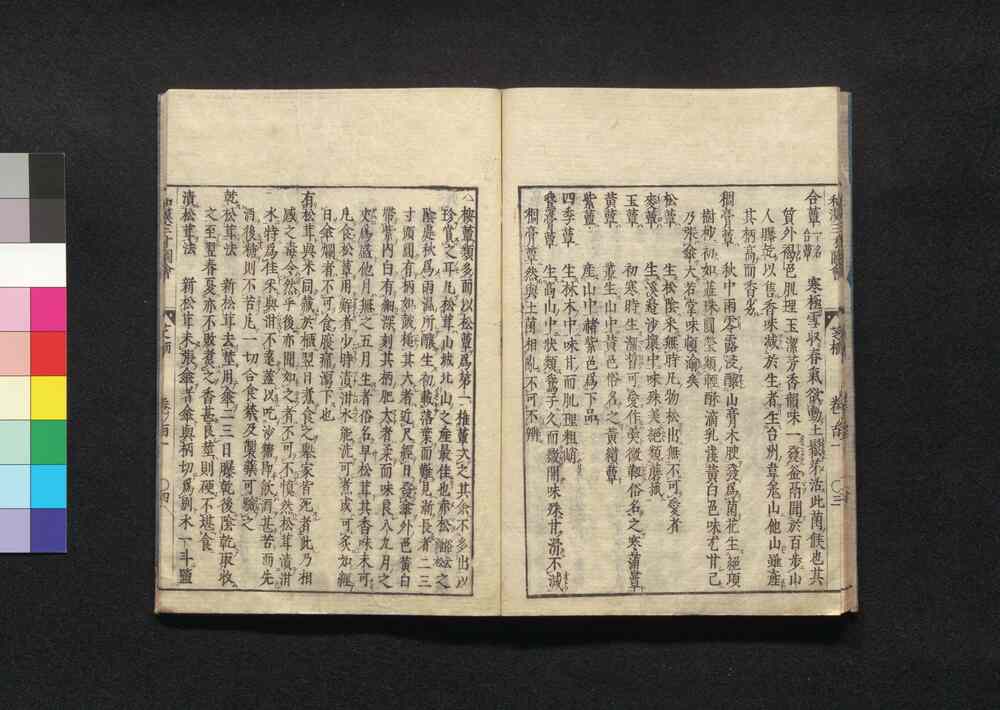 和漢三才圖會 芝栭 卷ノ百一 ○三
合蕈 一名台蕈 寒極雪収春氣欲動土鬆芽活此菌候也其
質外褐色肌理玉潔芳香韻味一發釜鬲聞於百步山
人曝乾以售香味減於生者台州韋羗山他山雖產
其柄高而香劣
稠膏蕈 秋中雨零露浸釀山膏木腴發爲菌花生絕頂
樹杪初如蕊珠圓瑩類輕酥滴乳淺黃白色味尤甘已
乃張傘大若掌味頓渝矣
松蕈 生松陰采無時凡物松出無不可愛者
麥蕈 生溪邊沙壤中味殊美絕類蘑菰
玉蕈 初寒時生潔皙可愛作羮微韌俗名之寒蒲蕈
黃蕈 叢生山中黃色俗名之黃纘蕈
紫蕈 產山中赭紫色爲下品
四季蕈 生林木中味甘而肌理粗峭
鵞膏蕈 生高山中狀類鵞子久而繖開味殊甘滑不減
稠膏蕈然與土菌相亂不可不辨
△按蕈類多而以松蕈爲第一椎蕈次之其余不多出以
珍賞之耳凡松茸山城北山之產最佳也赤松之
陰處秋爲雨溫所釀生初戴落葉而難見漸長者二三
寸頭圓有柄如鼓槌其大者近尺經日發傘外色黃白
帶紫內白有細深刻其柄肥大者柔而味良八九月之
交爲盛他月無之五月生者俗名早松茸其香味不可
凡食松蕈用鮮者少時漬泔水能洗可煮或可炙如經
日傘爛者不可食腹痛瀉下也
有松茸與米同藏於櫃翌日煮食之舉家皆死者此乃相
感之毒令然乎後亦聞如之者不可不愼然松茸漬泔
水特爲佳米與泔不毫蓋以吮沙糖即飲酒甚苦而先
酒後糖則不苦凡一切合食禁及製藥可識之
乾松茸法 新松茸去莖用傘二三日曝乾後陰乾取收
之至翌春夏亦不敗煮之香甚良莖則硬不堪食
漬松茸法 新松茸未張傘者傘與柄切爲別米一斗鹽
和漢三才圖會 芝栭 卷ノ百一 ○四